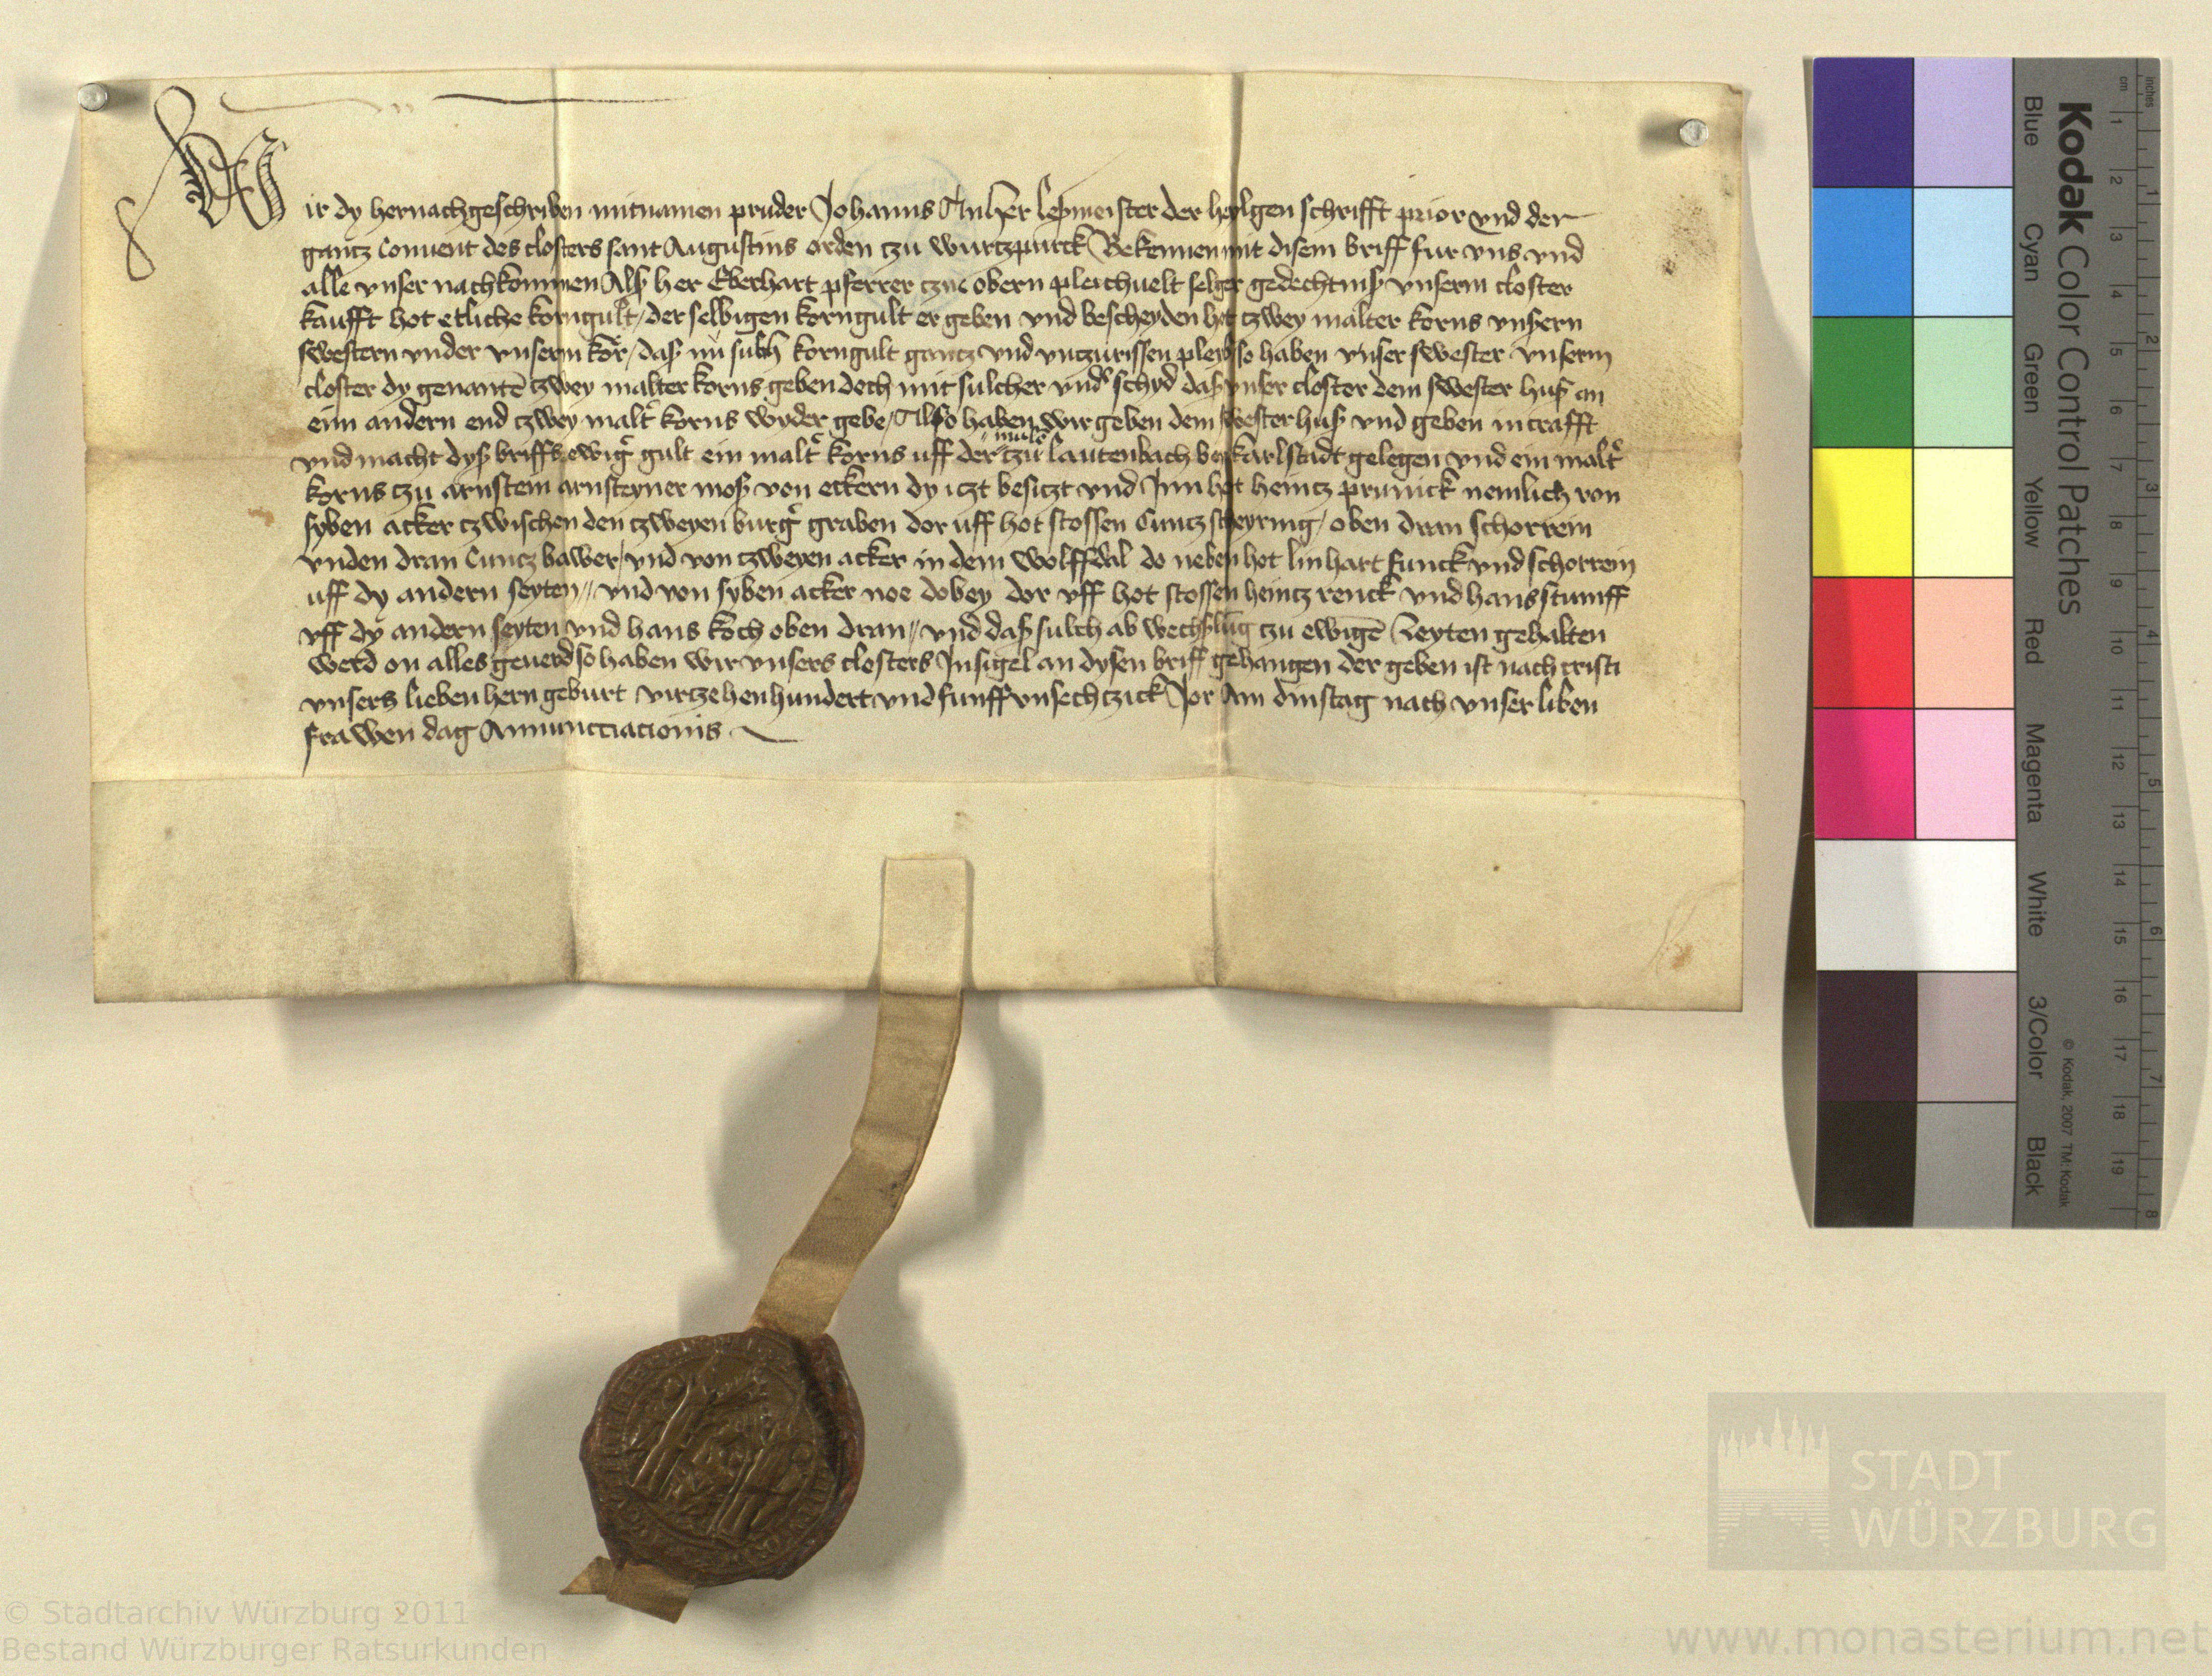 Wir dy hernachgeschriben mitnamen pruder Johanns Anher leßmeister der heylgen schrifft prior vnd der
gantz Convent des closters sant Augustins orden tzu wurtzpurck Bekennen mit disem briff fur vns vnd
alle vnser nachkommen Alß her Eberhart pferrer czue obern pleichuelt selger gedechtniß vnserm closter
kaufft hot etliche korngult / der selbigen korngult er geben vnd bescheyden hot tzwey malter korns vnsern
swestern vnder vnserm kor / daß nu sulch korngult gantz vnd vntzurissen pleib so haben vnser swester vnserm
closter dy genantē tzwey malter korns geben doch mit sulcher vndˀschyd daß vnser closter dem swester huß an
eim andern end tzwey maltˀ korns wyder gebe / Also haben wir geben dem swesterhuß vnd geben in crafft
vnd macht dyß briffs ewigˀ gult ein maltˀ korns uff der mule tzu lautenbach bey karlstadt gelegen vnd ein maltˀ
korns tzu arnstein arnsteyner moß von eckern dy itzt besitzt vnd Inn hot heintz prunick nemlich von
syben acker tzwischen den tzweyen burgˀ graben dor uff hot stossen Cuntz steyring / oben dran schorrein
vnden dran Cuntz bawer / vnd von tzweyen acker in dem wolffdal do neben hot linhart funck vnd schorrein
uff dy andern seyten // vnd von syben acker noe dobey dor vff hot stossen heintz renck vnd hans stumff
vff dy andern seyten vnd hans koch oben dran // vnd daß sulch ab wechßlung tzu ewigē Zeyten gehalten
werd on alles geuerd so haben wir vnsers closters Insigel an dysen briff gehangen der geben ist nach cristi
vnsers lieben hern geburt virtzehenhundert vnd funff vnsechtzick Jor Am dinstag nach vnser liben
frawen dag Annuncciacionis
Kodak Color Control Patches
Blue Cyan Green Yellow Red Magenta White 3/Color Black
© Kodak, 2007 TM: Kodak
cm 1 2 3 4 5 6 7 8 9 10 11 12 13 14 15 16 17 18 19
inches 1 2 3 4 5 6 7 8
STADT
WÜRZBURG
© Stadtarchiv Würzburg 2011
Bestand Würzburger Ratsurkunden
www.monasterium.net